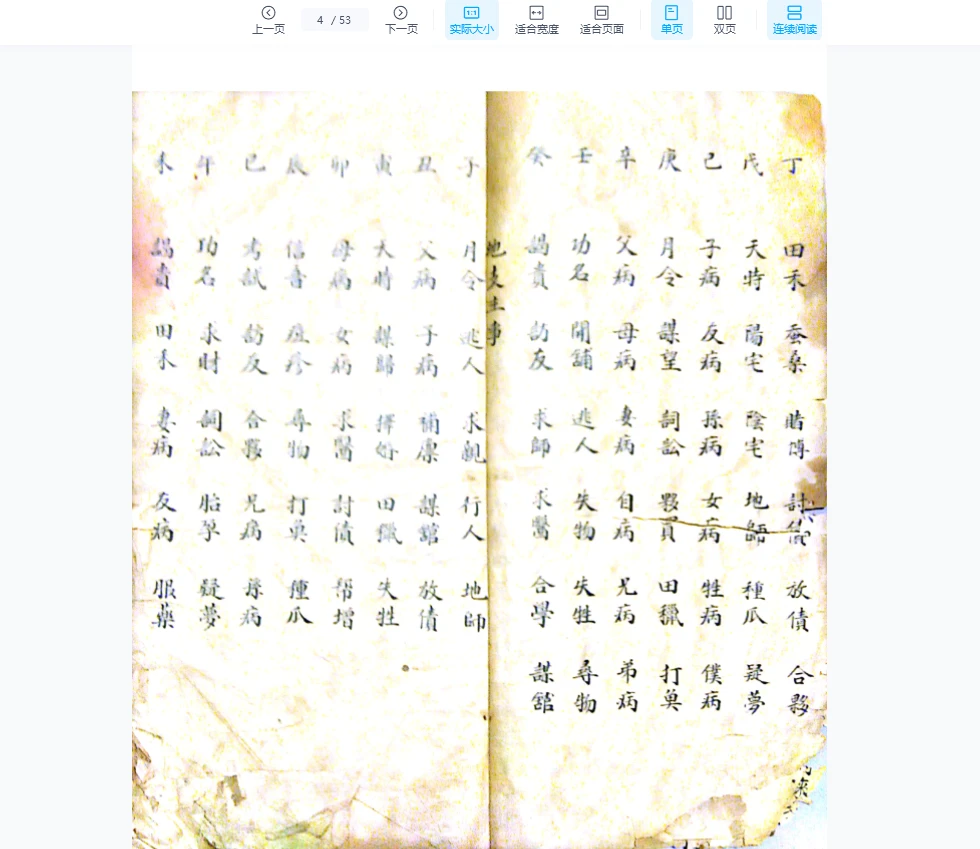 上一页
4 / 53
下一页
实际大小
适合宽度
适合页面
单页
双页
连续阅读
丁 田禾 蚕桑 賭博 討債 放債 合夥
戊 天時 陽宅 陰宅 地師 種瓜 疑夢
己 子病 友病 孫病 女病 牲病 僕病
庚 月令 謀望 詞訟 夥買 田獵 打魚
辛 父病 母病 妻病 自病 兄病 弟病
壬 功名 開舖 逃人 失物 失牲 尋物
癸 謁貴 訪友 求師 求醫 合學 謀舘
地支主事
子 月令 逃人 求親 行人 地師
丑 父病 子病 補廩 謀舘 放債
寅 天時 謀歸 擇婚 田獵 失牲
卯 母病 女病 求醫 討債 帮增
辰 信音 痘疹 尋物 打魚 種瓜
巳 考試 訪友 合夥 兄病 孫病
午 功名 求財 詞訟 胎孕 疑夢
未 謁貴 田禾 妻病 友病 服藥